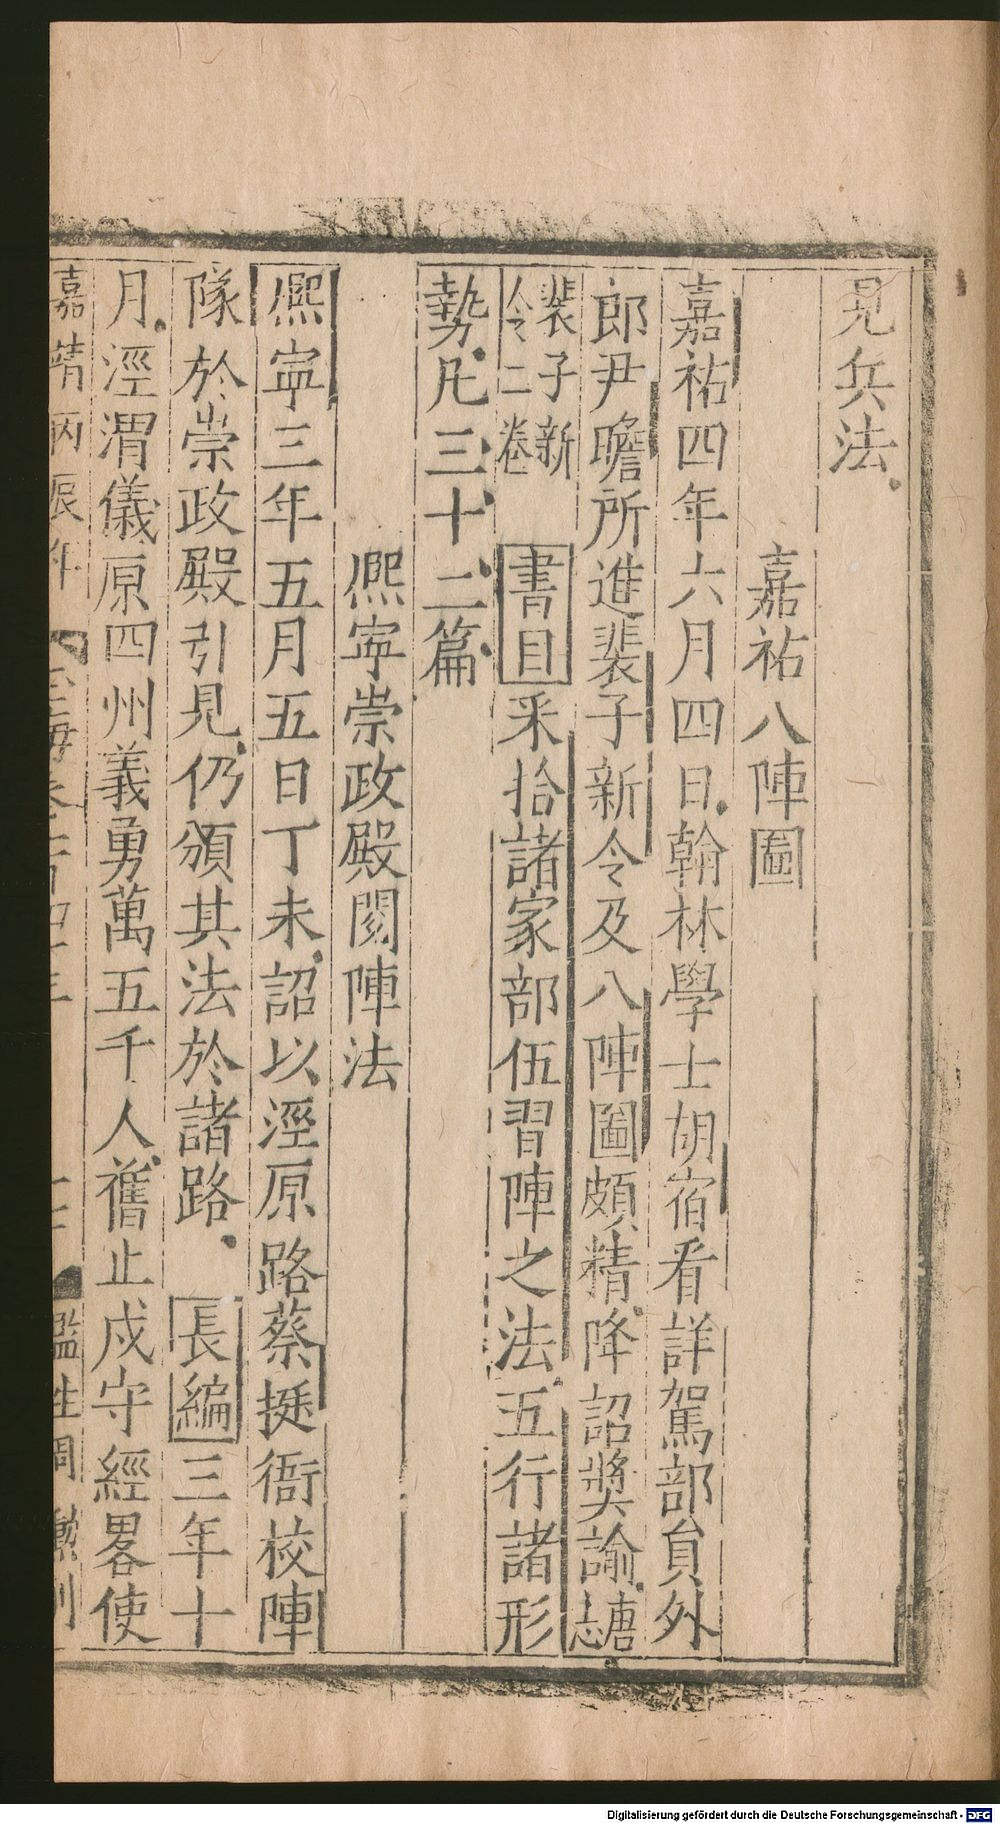 見兵法
嘉祐八陣圖
嘉祐四年六月四日翰林學士胡宿看詳駕部貟外
郎尹瞻所進裴子新令及八陣圖頗精降詔奬諭志唐
裴子新
令二卷
書目采拾諸家部伍習陣之法五行諸形
勢凡三十二篇
熈寜崇政殿閱陣法
熈寜三年五月五日丁未詔以涇原路蔡挺衙校陣
隊於崇政殿引見仍頒其法於諸路 長編三年十
月涇渭儀原四州義勇萬五千人舊止戍守經畧使
嘉靖丙辰年 玉海卷一百四十三 監生周 刊
Digitalisierung gefördert durch die Deutsche Forschungsgemeinschaft - DFG